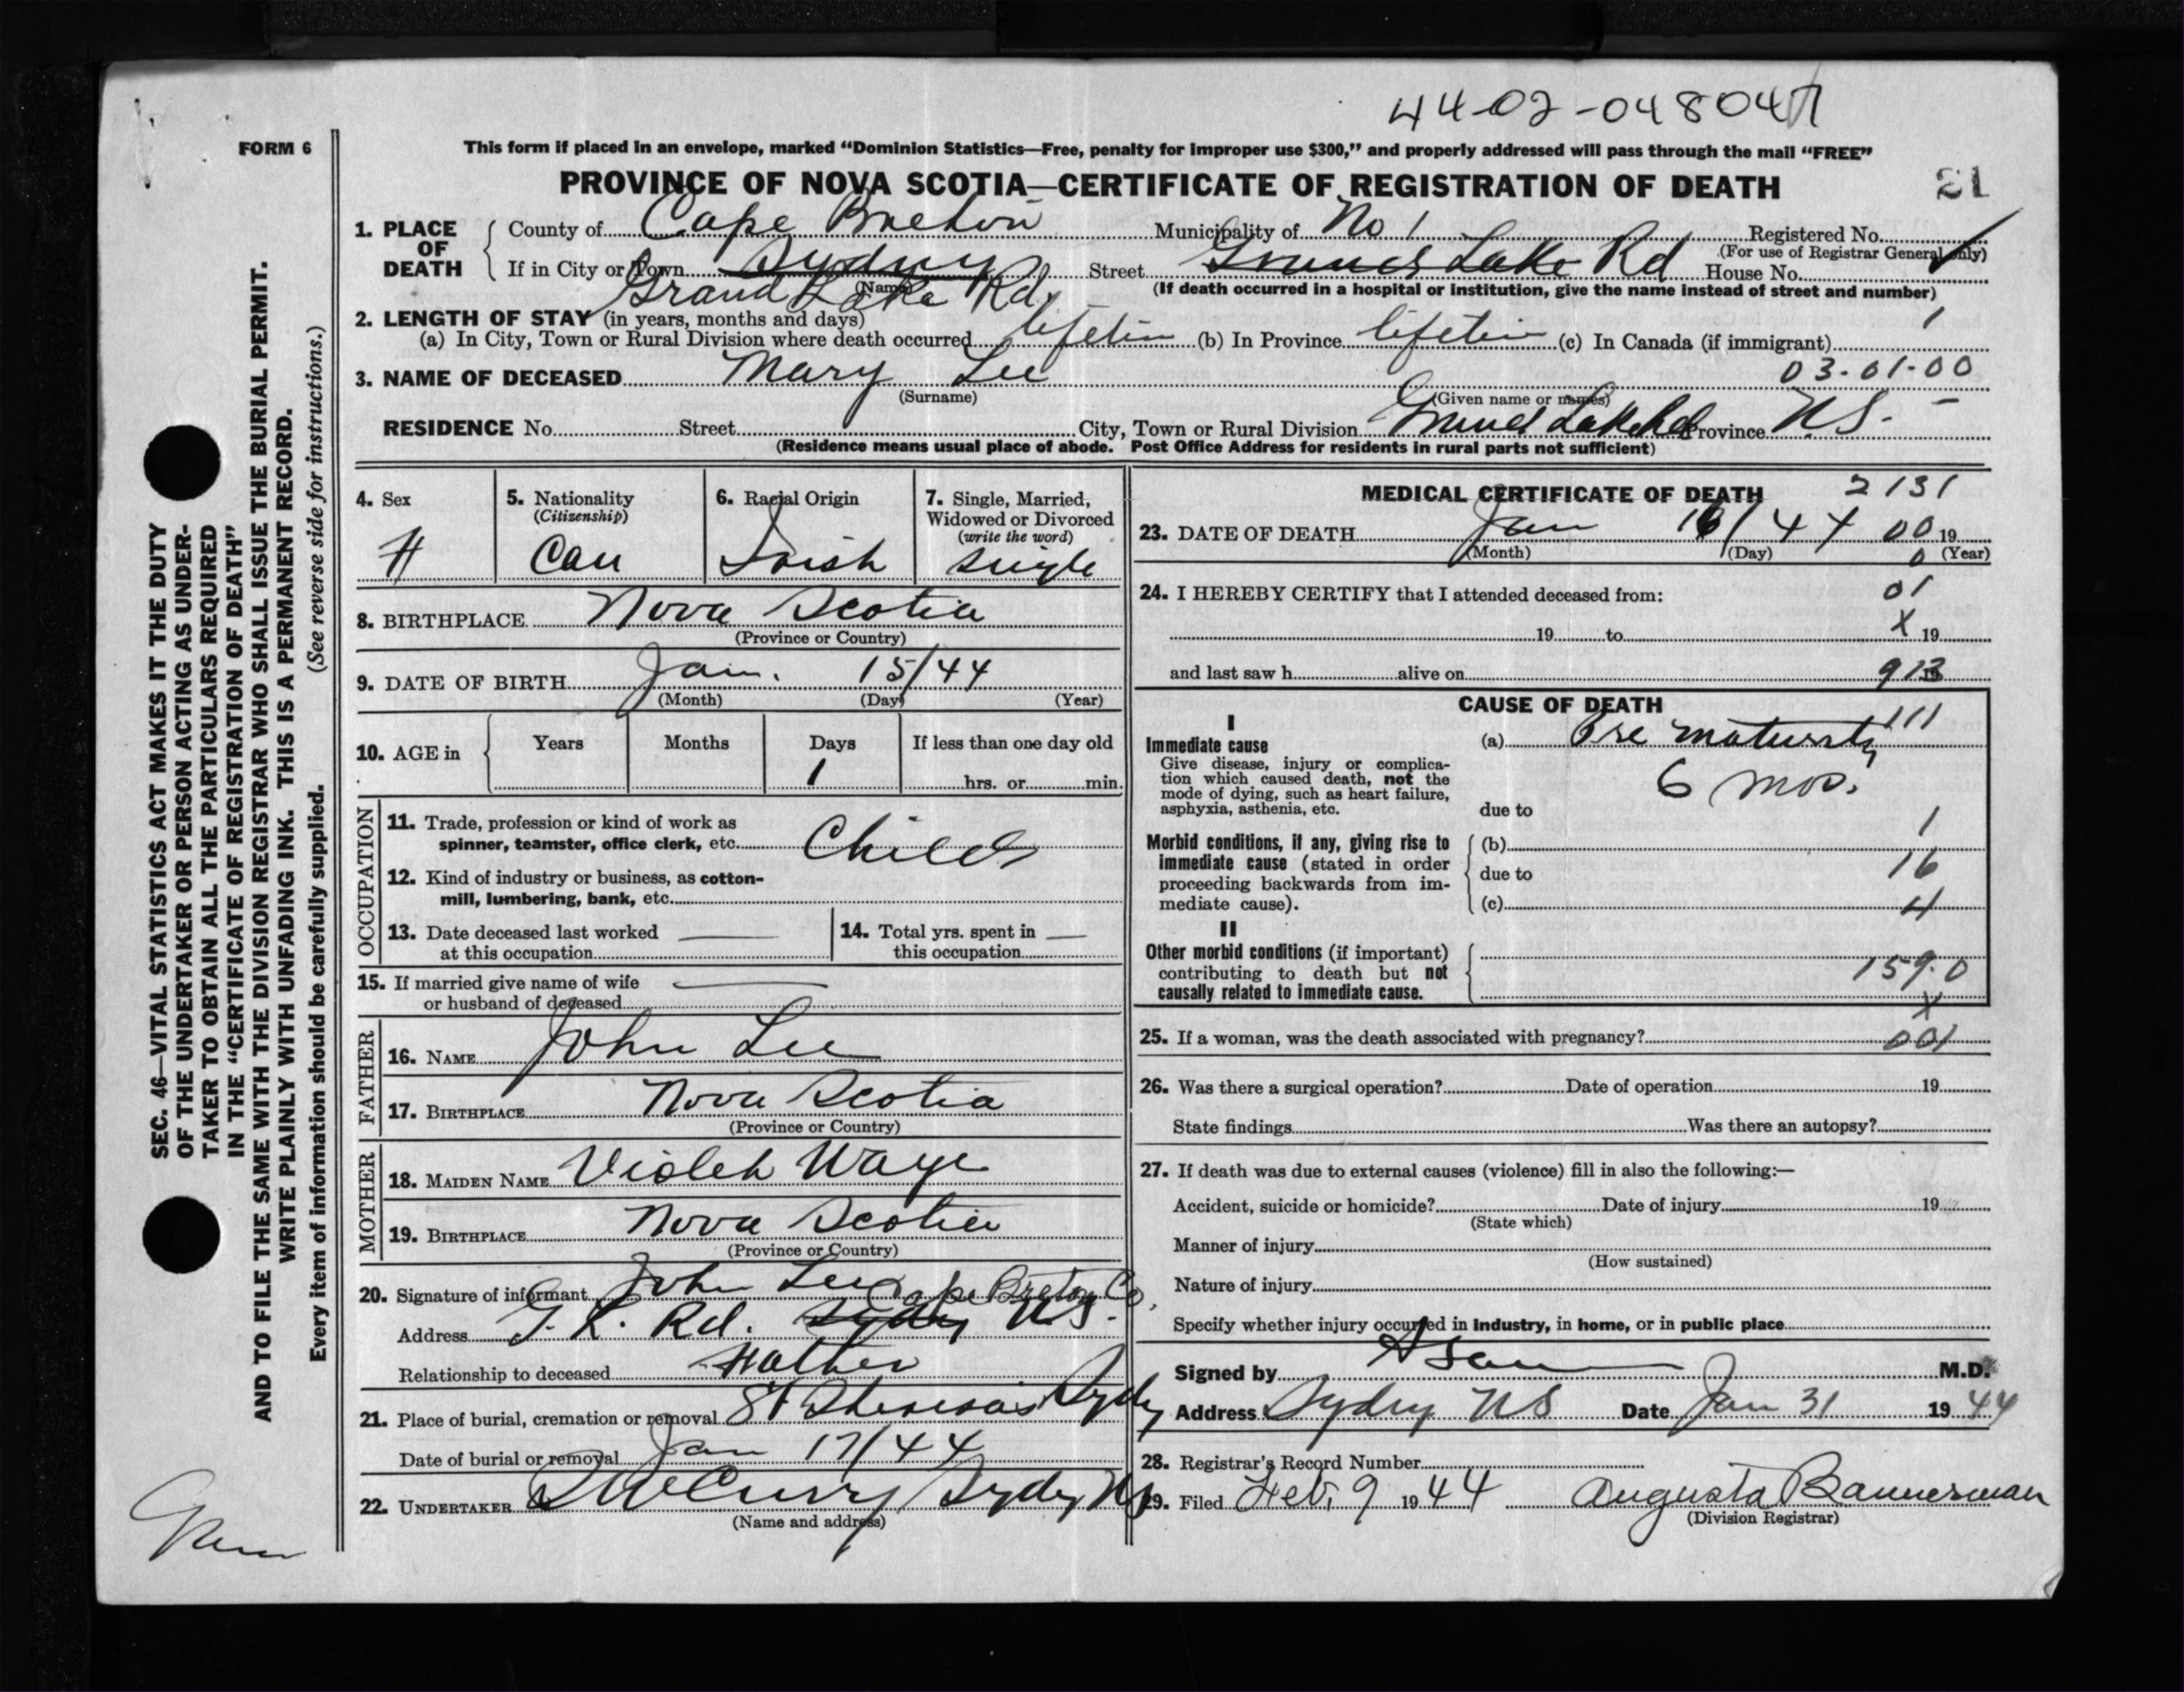 44-02-048047
FORM 6
This form if placed in an envelope, marked “Dominion Statistics—Free, penalty for improper use $300,” and properly addressed will pass through the mail “FREE”
PROVINCE OF NOVA SCOTIA—CERTIFICATE OF REGISTRATION OF DEATH
21
1. PLACE OF DEATH
County of Cape Breton Municipality of No 1 Registered No.
(For use of Registrar General only)
If in City or Town Sydney Street Grand Lake Rd House No.
(Name)
Grand Lake Rd.
(If death occurred in a hospital or institution, give the name instead of street and number)
2. LENGTH OF STAY (in years, months and days)
1
(a) In City, Town or Rural Division where death occurred lifetim (b) In Province lifetim (c) In Canada (if immigrant)
3. NAME OF DECEASED Mary Lee 03-01-00
(Surname) (Given name or names)
RESIDENCE No. Street City, Town or Rural Division Grand Lake Rd Province N.S. -
(Residence means usual place of abode. Post Office Address for residents in rural parts not sufficient)
4. Sex
F
5. Nationality
(Citizenship)
Can
6. Racial Origin
Irish
7. Single, Married,
Widowed or Divorced
(write the word)
single
8. BIRTHPLACE Nova Scotia
(Province or Country)
9. DATE OF BIRTH Jan. 15/44
(Month) (Day) (Year)
10. AGE in
Years Months Days If less than one day old
1 hrs. or min.
OCCUPATION
11. Trade, profession or kind of work as
spinner, teamster, office clerk, etc. Child
12. Kind of industry or business, as cotton-
mill, lumbering, bank, etc.
13. Date deceased last worked
at this occupation
14. Total yrs. spent in
this occupation
15. If married give name of wife
or husband of deceased
FATHER
16. NAME John Lee
17. BIRTHPLACE Nova Scotia
(Province or Country)
MOTHER
18. MAIDEN NAME Violet Waye
19. BIRTHPLACE Nova Scotia
(Province or Country)
20. Signature of informant John Lee Cape Breton Co,
Address G. L. Rd. Sydney N.S.
Relationship to deceased Father
21. Place of burial, cremation or removal St Theresa's Sydney
Date of burial or removal Jan 17/44
22. UNDERTAKER McCurry Sydney NS
(Name and address)
MEDICAL CERTIFICATE OF DEATH 2131
23. DATE OF DEATH Jan 16/44 00 19
(Month) (Day) 0 (Year)
24. I HEREBY CERTIFY that I attended deceased from: 01
19 to X 19
and last saw h alive on 913 19
CAUSE OF DEATH
I
Immediate cause
Give disease, injury or complica-
tion which caused death, not the
mode of dying, such as heart failure,
asphyxia, asthenia, etc.
(a) Pre maturity 111
6 mos.
due to
1
Morbid conditions, if any, giving rise to
immediate cause (stated in order
proceeding backwards from im-
mediate cause).
(b)
due to 16
(c) 4
II
Other morbid conditions (if important)
contributing to death but not
causally related to immediate cause.
159.0
X
25. If a woman, was the death associated with pregnancy? 001
26. Was there a surgical operation? Date of operation 19
State findings Was there an autopsy?
27. If death was due to external causes (violence) fill in also the following:—
Accident, suicide or homicide? Date of injury 19
(State which)
Manner of injury
(How sustained)
Nature of injury
Specify whether injury occurred in industry, in home, or in public place
Signed by M.D.
Address Sydney NS Date Jan 31 19 44
28. Registrar's Record Number
29. Filed Feb. 9 19 44 Augusta Bannerman
(Division Registrar)
SEC. 46—VITAL STATISTICS ACT MAKES IT THE DUTY
OF THE UNDERTAKER OR PERSON ACTING AS UNDER-
TAKER TO OBTAIN ALL THE PARTICULARS REQUIRED
IN THE “CERTIFICATE OF REGISTRATION OF DEATH”
AND TO FILE THE SAME WITH THE DIVISION REGISTRAR WHO SHALL ISSUE THE BURIAL PERMIT.
WRITE PLAINLY WITH UNFADING INK. THIS IS A PERMANENT RECORD.
Every item of information should be carefully supplied. (See reverse side for instructions.)